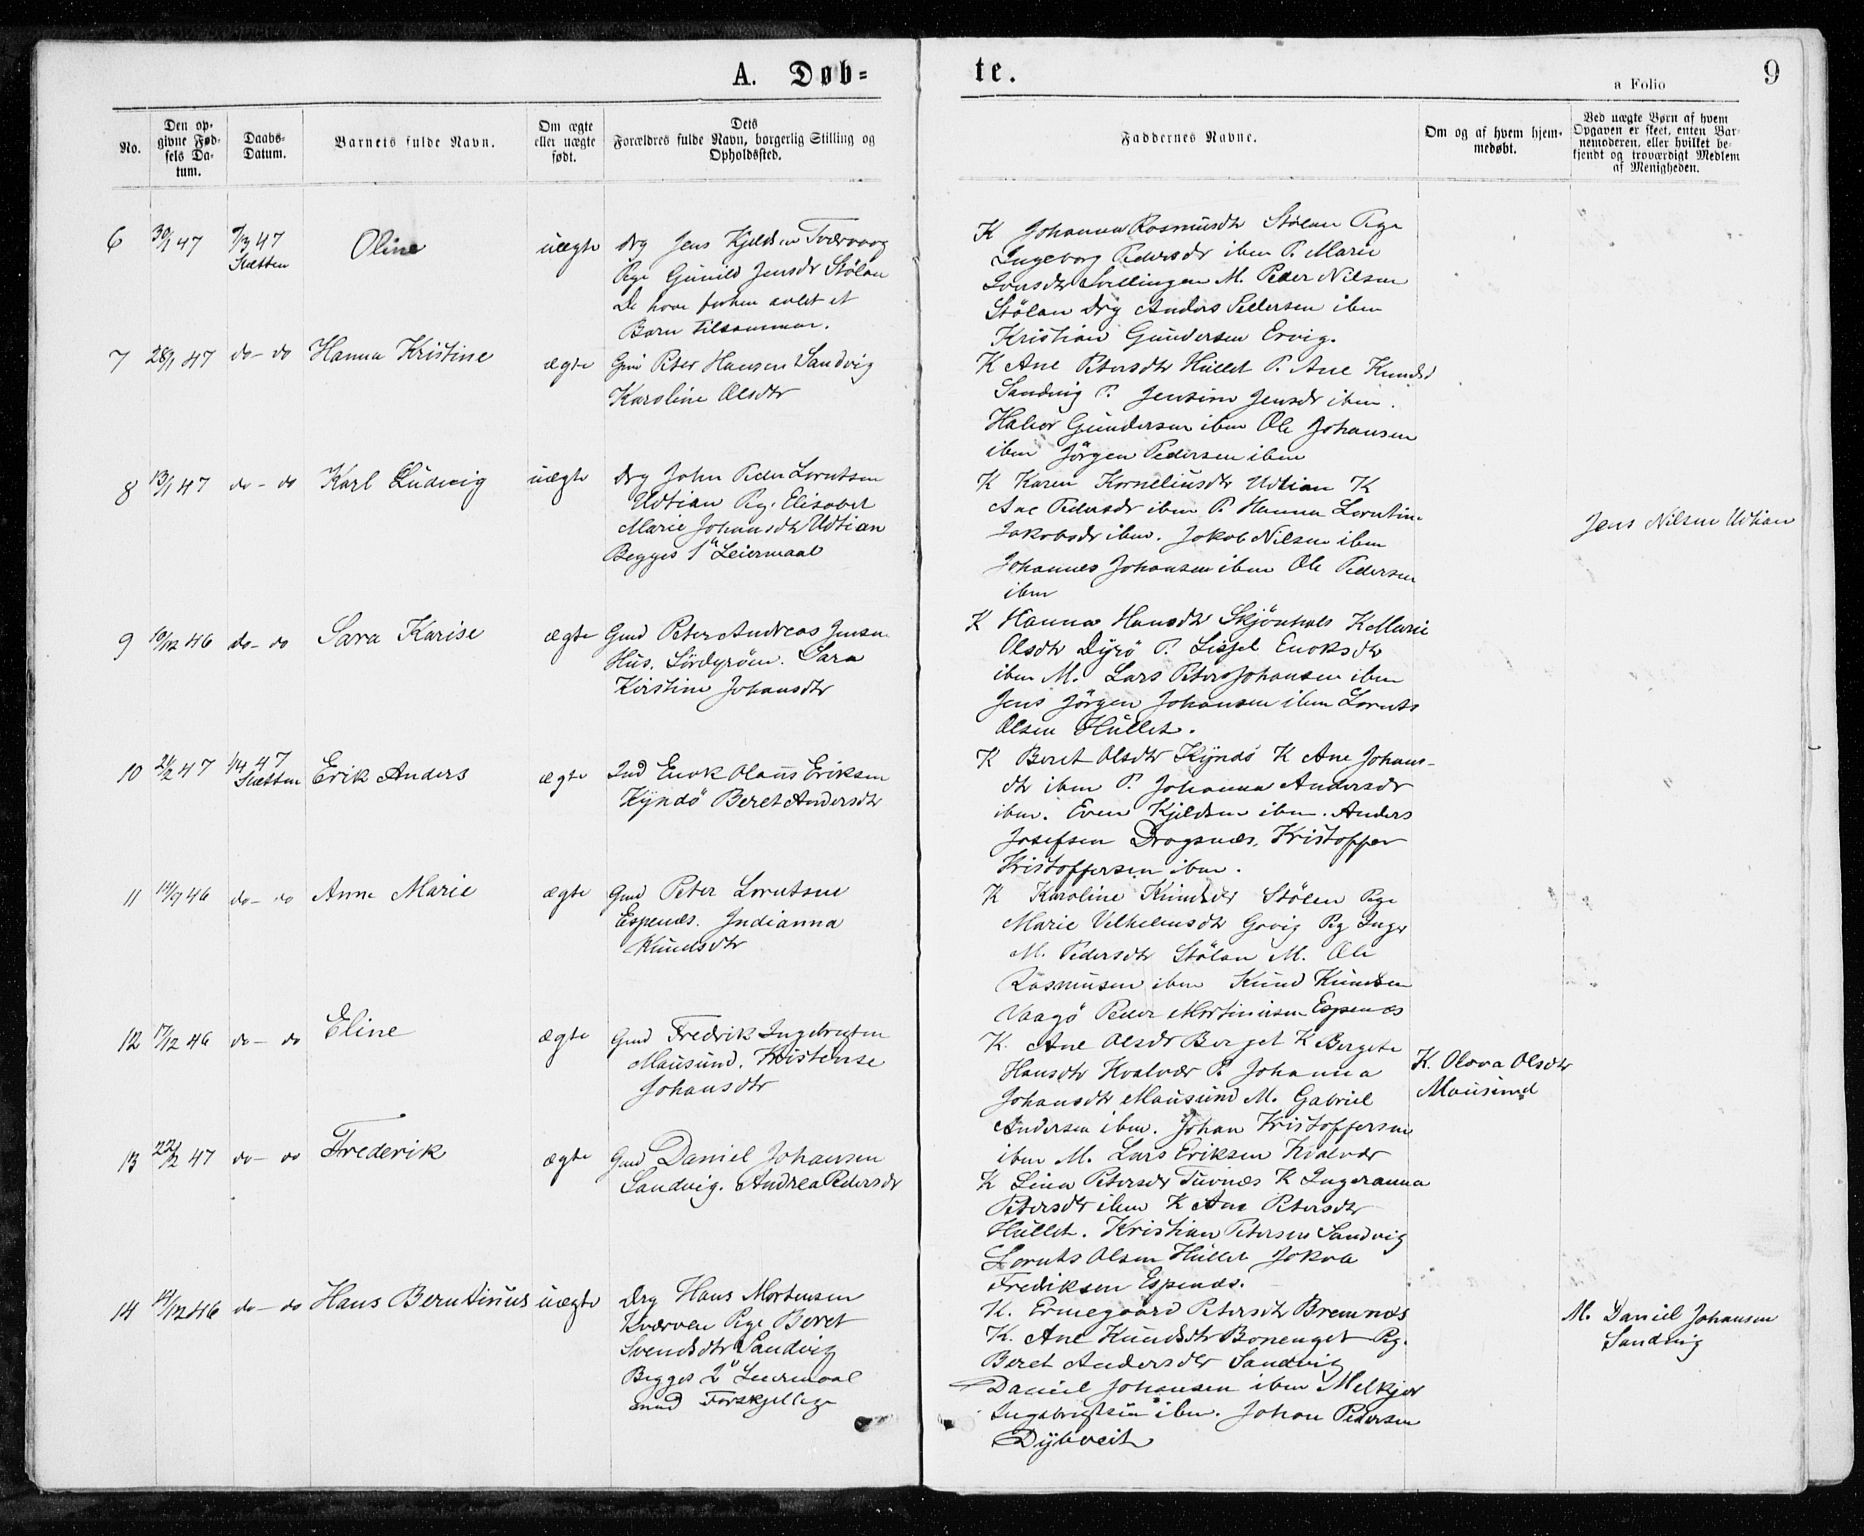 A. Døb=
te.
a Folio
9
No.
Den op-
givne Fød-
sels Da-
tum.
Daabs-
Datum.
Barnets fulde Navn.
Om ægte
eller uægte
født.
Dets
Forældres fulde Navn, borgerlig Stilling og
Opholdssted.
Faddernes Navne.
Om og af hvem hjem-
medøbt.
Ved uægte Børn af hvem
Opgaven er skeet, enten Bar-
nemoderen, eller hvilket be-
kjendt og troværdigt Medlem
af Menigheden.
6 30/1 47 7/3 47 Oline uægte Ung Jens Kjeldsen Tværvaag
Sletten Pge Gunild Jensdr Stølan
De have forhen avlet et
Barn tilsammen.
K Johanna Rasmusdtr Stølan Pige
Ingeborg Pedersdr ibm P. Marie
M. Peder Nilsen
Stølan Ung Anders Pedersen ibm
Kristian Gundersen Ervig.
7 28/1 47 do - do Hanna Kristine ægte Gmd Peter Hansen Sandvig
Karoline Olsdtr
K Ane Petersdtr Hullet P. Ane Knudsd
Sandvig P. Jensine Jensdr ibm.
Halvor Gundersen ibm Ole Johansen
ibm Jörgen Pedersen ibm
8 13/1 47 do - do Karl Ludvig uægte Ung John Peder Lorntsen
Udtian Pg. Elisabet
Marie Johansdtr Udtian
Begges 1" Leiermaal
K Karen Korneliusdtr Udtian K
Ane Pedersdr ibm P. Hanna Lorntine
Jakobsdr ibm. Jakob Nilsen ibm
Johannes Johansen ibm Ole Pedersen
ibm
Jens Nilsen Udtian
9 10/12 46 do - do Sara Karise ægte Gmd Peter Andreas Jensen
Hus. Sördyrøen. Sara
Kirstine Johansdtr
K Hanna Hansdtr Skjönhals K Marie
Olsdtr Dyrö P. Lissel Enoksdtr
ibm M. Lars Peter Johansen ibm
Jens Jörgen Johansen ibm Lornts
Olsen Hullet.
10 21/2 47 1/4 47 Erik Anders ægte Ind Enok Olaus Eriksen
Sletten Kyndö Beret Andersdtr
K Beret Olsdtr Kyndö K Ane Johans-
dtr ibm P. Johanna Andersdr
ibm. Even Kjeldsen ibm. Anders
Josefsen Dragsnæs. Kristoffer
Kristoffersen ibm.
11 14/9 46 do - do Anne Marie ægte Gmd Peter Lorntsen
Espenæs. Indianna
Knudsdtr
K Karoline Knudsdr Stölen Pge
Marie Vilhelmsdtr Gjevig Pg Inger
M. Pedersdtr Stölan M. Ole
Rasmusen ibm Knud Knudsen
Vaagö Peder Martinusen Espenæs
12 17/12 46 do - do Eline ægte Gmd Fredrik Ingebrigtsen
Mausund. Kristense
Johansdtr
K. Ane Olsdr Berget K Bergete
Hansdtr Kvalvær P. Johanna
Johansdtr Mausund M. Gabriel
Andersen ibm. Johan Kristoffersen
ibm M. Lars Eriksen Kvalvær
K. Olava Olsdtr
Mausund
13 22/2 47 do - do Frederik ægte Gmd Daniel Johansen
Sandvig. Andrea Pedersdr
K Lina Petersdr Tuvnæs K Ingeranna
Petersdtr ibm K Ane Petersdtr
Hullet. Kristian Petersen Sandvig
Lornts Olsen Hullet Jokva
Frediksen Espenæs.
14 14/12 46 do - do Hans Berntinus uægte Ung Hans Mortensen
Kværven Pige Beret
Svendsdtr Sandvig
Begges 2" Leiermaal
med Forskjellige
K. Ermegaard Petersdtr Bremnæs
K. Ane Knudsdtr Bonenget Pg.
Beret Andersdtr Sandvig
Daniel Johansen ibm Melkjør
Ingebrigtsen ibm. Johan Pedersen
Dybveit
M. Daniel Johansen
Sandvig